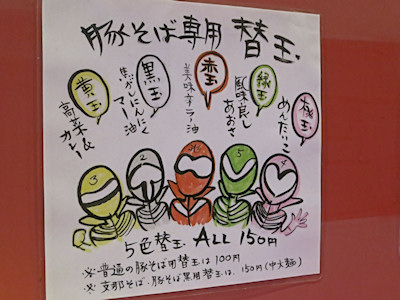 豚そば専用 替玉
黄玉
高菜&カレー
黒玉
焦がしにんにくマー油
赤玉
美味辛ラー油
緑玉
風味良しあおさ
桃玉
めんたいこ
3
2
5
4
5色替玉 ALL 150円
※普通の豚そば用替玉は100円
※支那そば・豚そば黒用替玉は、150円(中太麺)